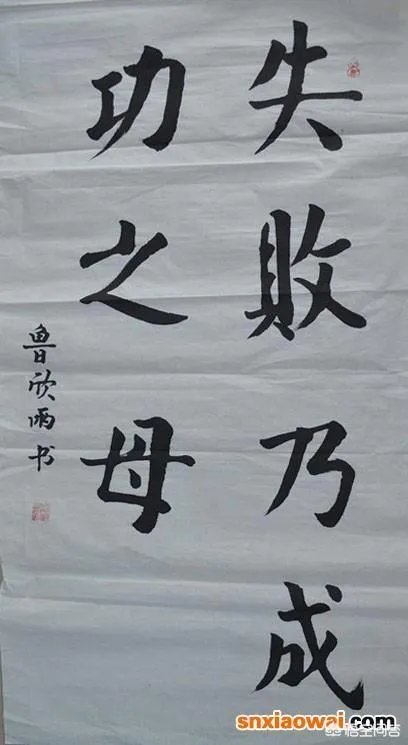 失敗乃成
功之母
鲁欣雨书
snxiaowai.com
悟空问答